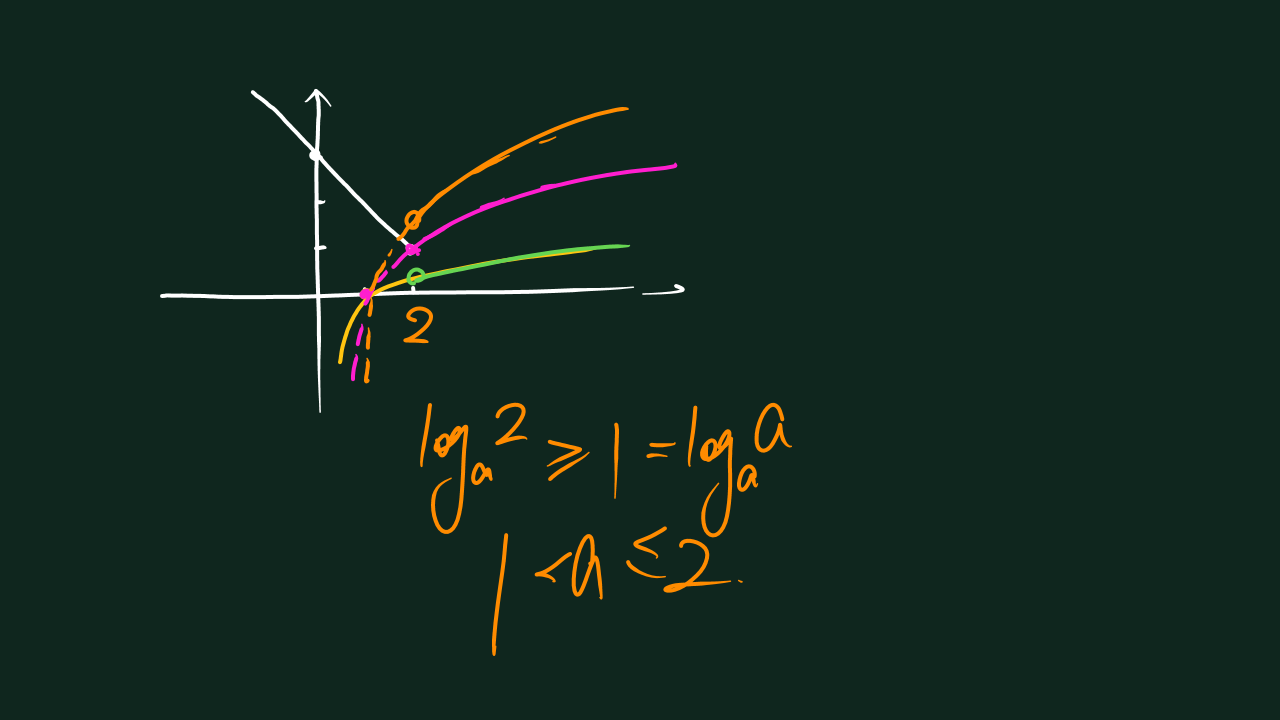 2
logₐ2 ⩾ 1 = logₐa
1 < a ≤ 2.